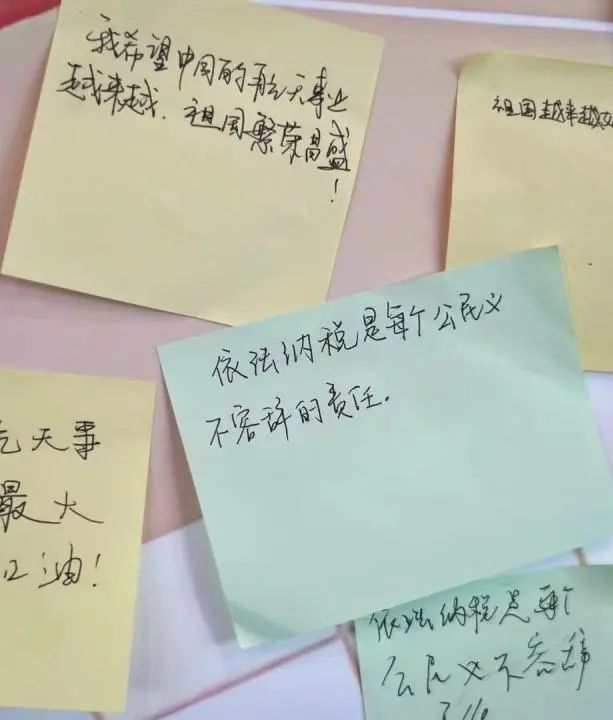 我希望中国的航天事业
越来越. 祖国繁荣昌盛
!
祖国越来越好
依法纳税是每个公民义
不容辞的责任.
天事
最大
油!
依法纳税是每个
公民义不容辞